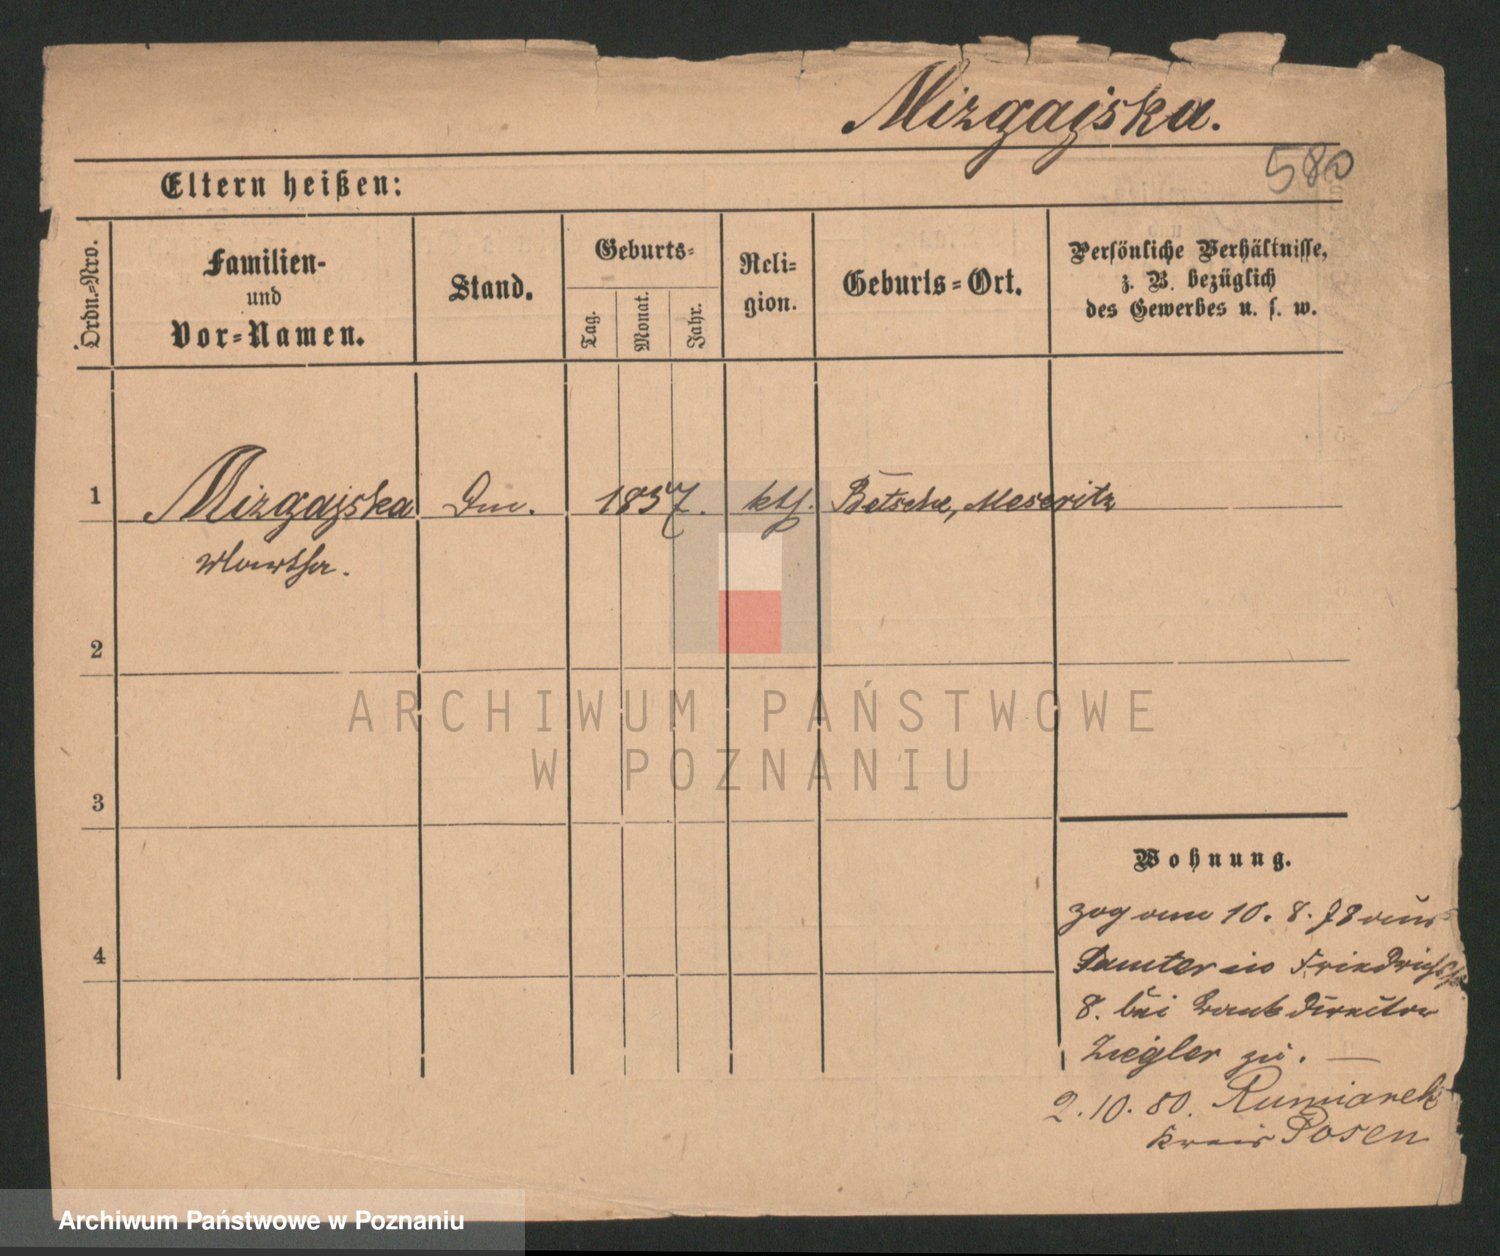 Mizgajska.
580
Eltern heißen:
Ordn.-Nro.
Familien-
und
Vor-Namen.
Stand.
Geburts-
Tag.
Monat.
Jahr.
Reli-
gion.
Geburts-Ort.
Persönliche Verhältnisse,
z. B. bezüglich
des Gewerbes u. s. w.
1 Mizgajska 1857. kth. Betsche, Meseritz
Martha.
2
3
4
Wohnung.
zog am 10. 8. 78 aus
Samter in Friedrichstr
8. bei Bankdirektor
Ziegler zu. —
2. 10. 80. Rumianek
Kreis Posen
ARCHIWUM PAŃSTWOWE
W POZNANIU
Archiwum Państwowe w Poznaniu